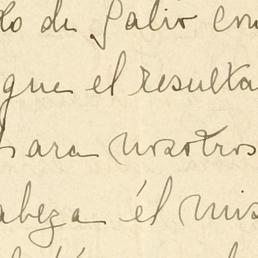 lo de Galio con
gue el resulta
para nosotros
abeza él mis